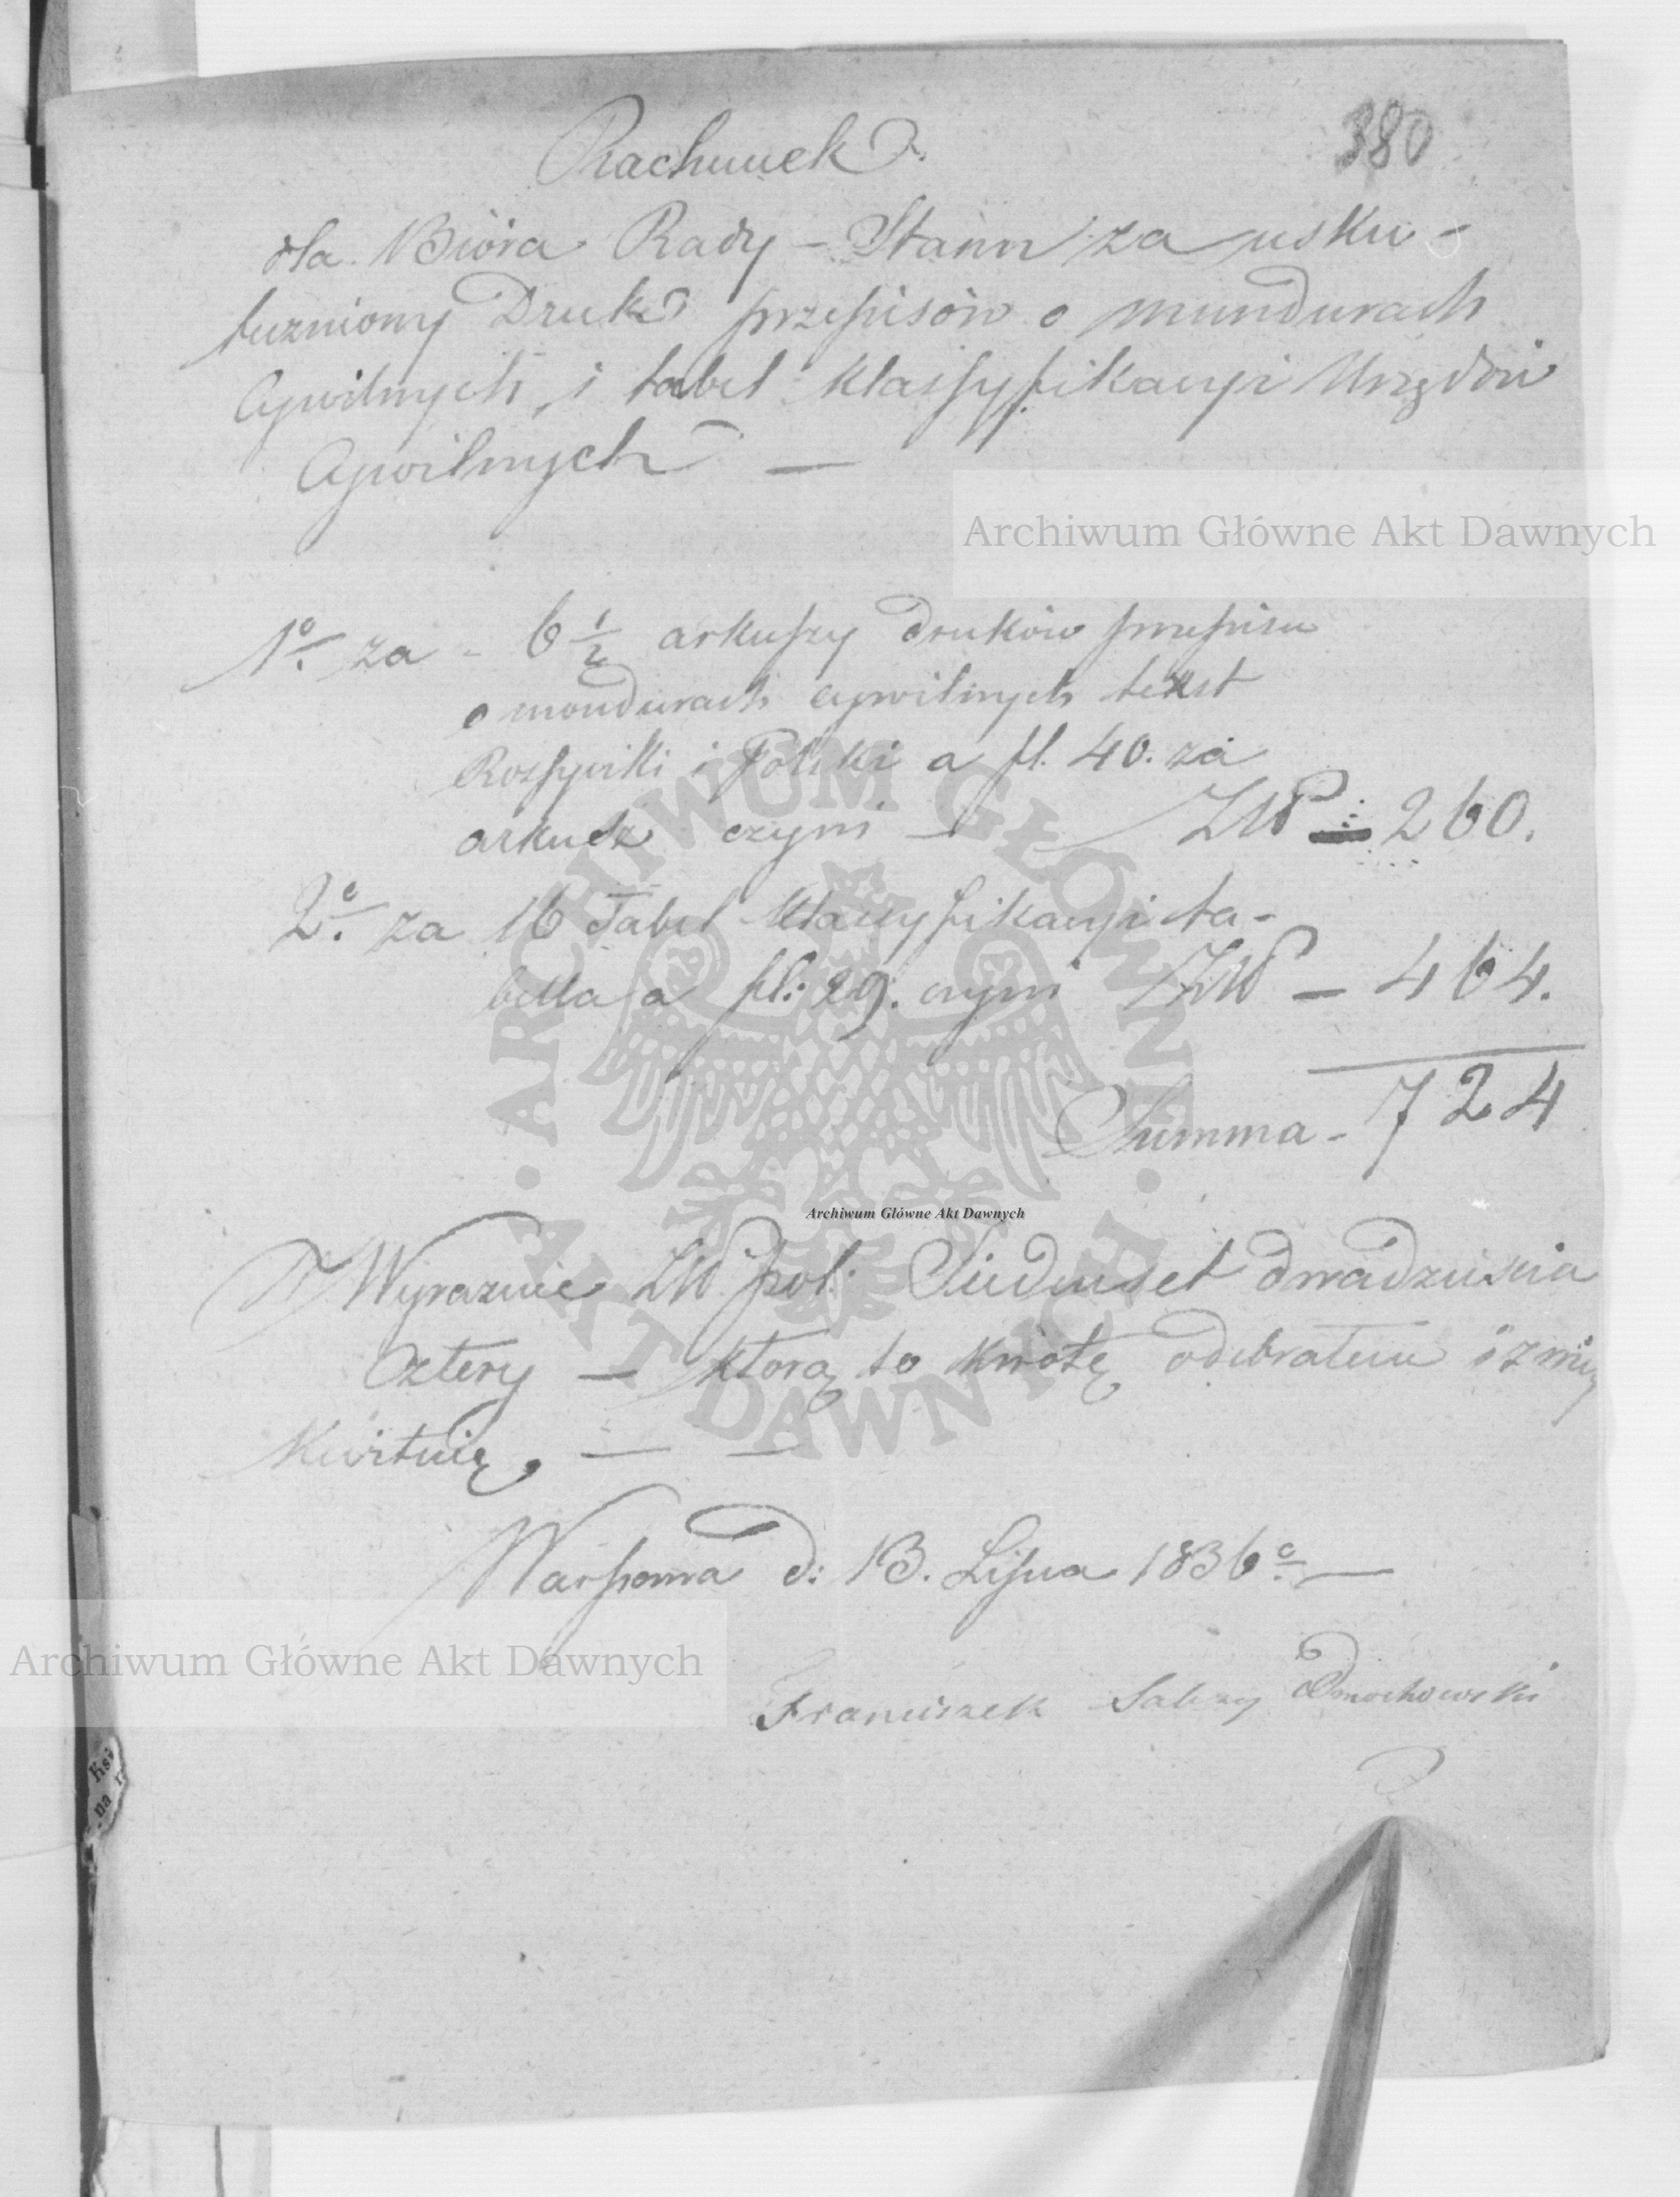 380
Rachunek
dla Biora Rady Stanu za usku-
teczniony Druk przepisów o mundurach
Cywilnych, i tabel klassyfikacyi Urzędów
Cywilnych —
Archiwum Główne Akt Dawnych
1o. za - 6 1/2 arkuszy druków przepisu
o mundurach cywilnych text
Rossyiski i Polski a fl. 40. za
arkusz czyni — ZłP 260.
2o. za 16 Tabel klassyfikacyi ta-
bella a fl: 29. czyni ZłP — 464.
Summa - 724
Archiwum Główne Akt Dawnych
Wyraznie Zł. pol: Siedmset dwadzieścia
cztery — którą to kwotę odebrałem i z niey
Kwituię. — —
Warszawa d: 13. Lipca 1836o. —
Archiwum Główne Akt Dawnych
Franciszek Salezy Dmochowski
ARCHIWUM GŁÓWNE
AKT DAWNYCH
Ksi
na r